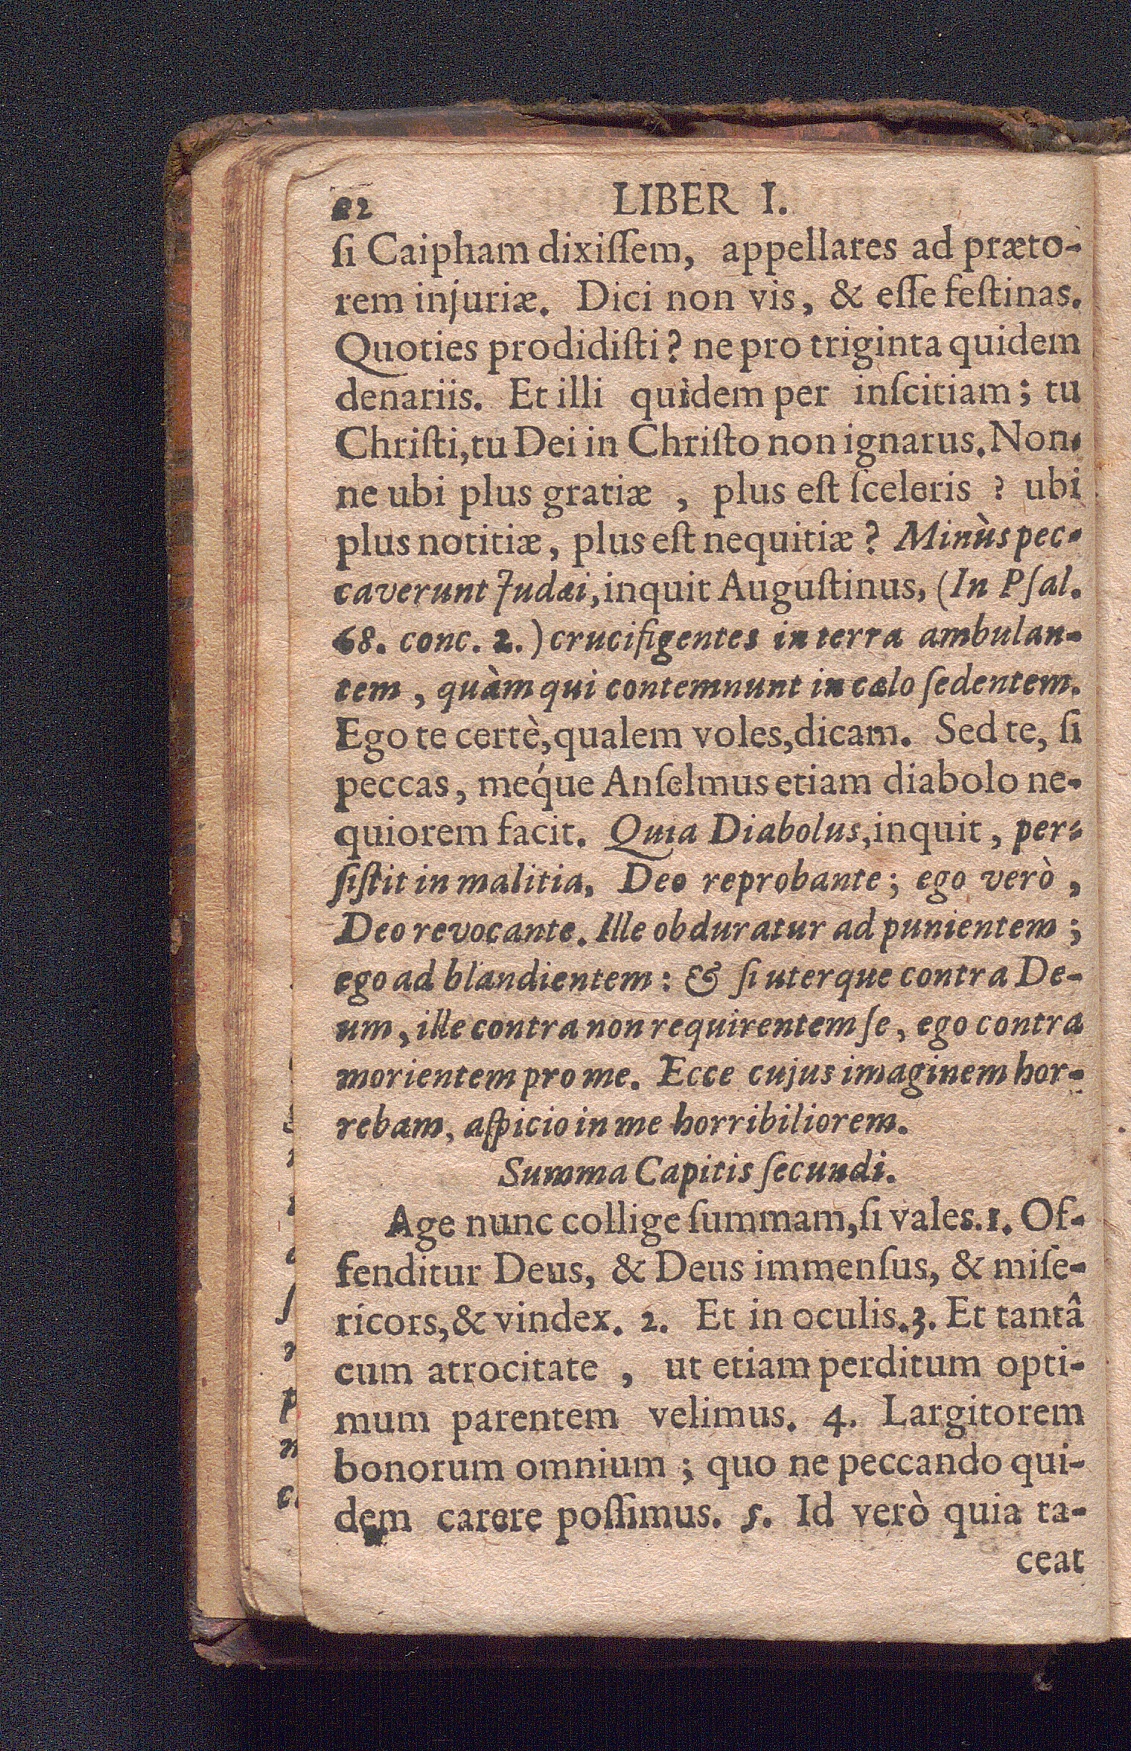 22 LIBER I.
ſi Caipham dixiſſem, appellares ad præto-
rem injuriæ. Dici non vis, & eſſe feſtinas.
Quoties prodidiſti? ne pro triginta quidem
denariis. Et illi quìdem per inſcitiam; tu
Chriſti, tu Dei in Chriſto non ignarus. Non-
ne ubi plus gratiæ , plus eſt ſceleris ? ubi
plus notitiæ, plus eſt nequitiæ? Minùs pec-
caverunt Judæi, inquit Auguſtinus, (In Pſal.
68. conc. 2.) crucifigentes in terra ambulan-
tem , quàm qui contemnunt in cælo ſedentem.
Ego te certè, qualem voles, dicam. Sed te, ſi
peccas, meq́ue Anſelmus etiam diabolo ne-
quiorem facit. Quia Diabolus, inquit, per-
ſiſtit in malitia, Deo reprobante; ego verò ,
Deo revocante. Ille obduratur ad punientem ;
ego ad blandientem: & ſi uterque contra De-
um, ille contra non requirentem ſe, ego contra
morientem pro me. Ecce cujus imaginem hor-
rebam, aſpicio in me horribiliorem.
Summa Capitis ſecundi.
Age nunc collige ſummam, ſi vales. 1. Of-
fenditur Deus, & Deus immenſus, & miſe-
ricors, & vindex. 2. Et in oculis. 3. Et tantâ
cum atrocitate , ut etiam perditum opti-
mum parentem velimus. 4. Largitorem
bonorum omnium ; quo ne peccando qui-
dem carere poſſimus. 5. Id verò quia ta-
ceat